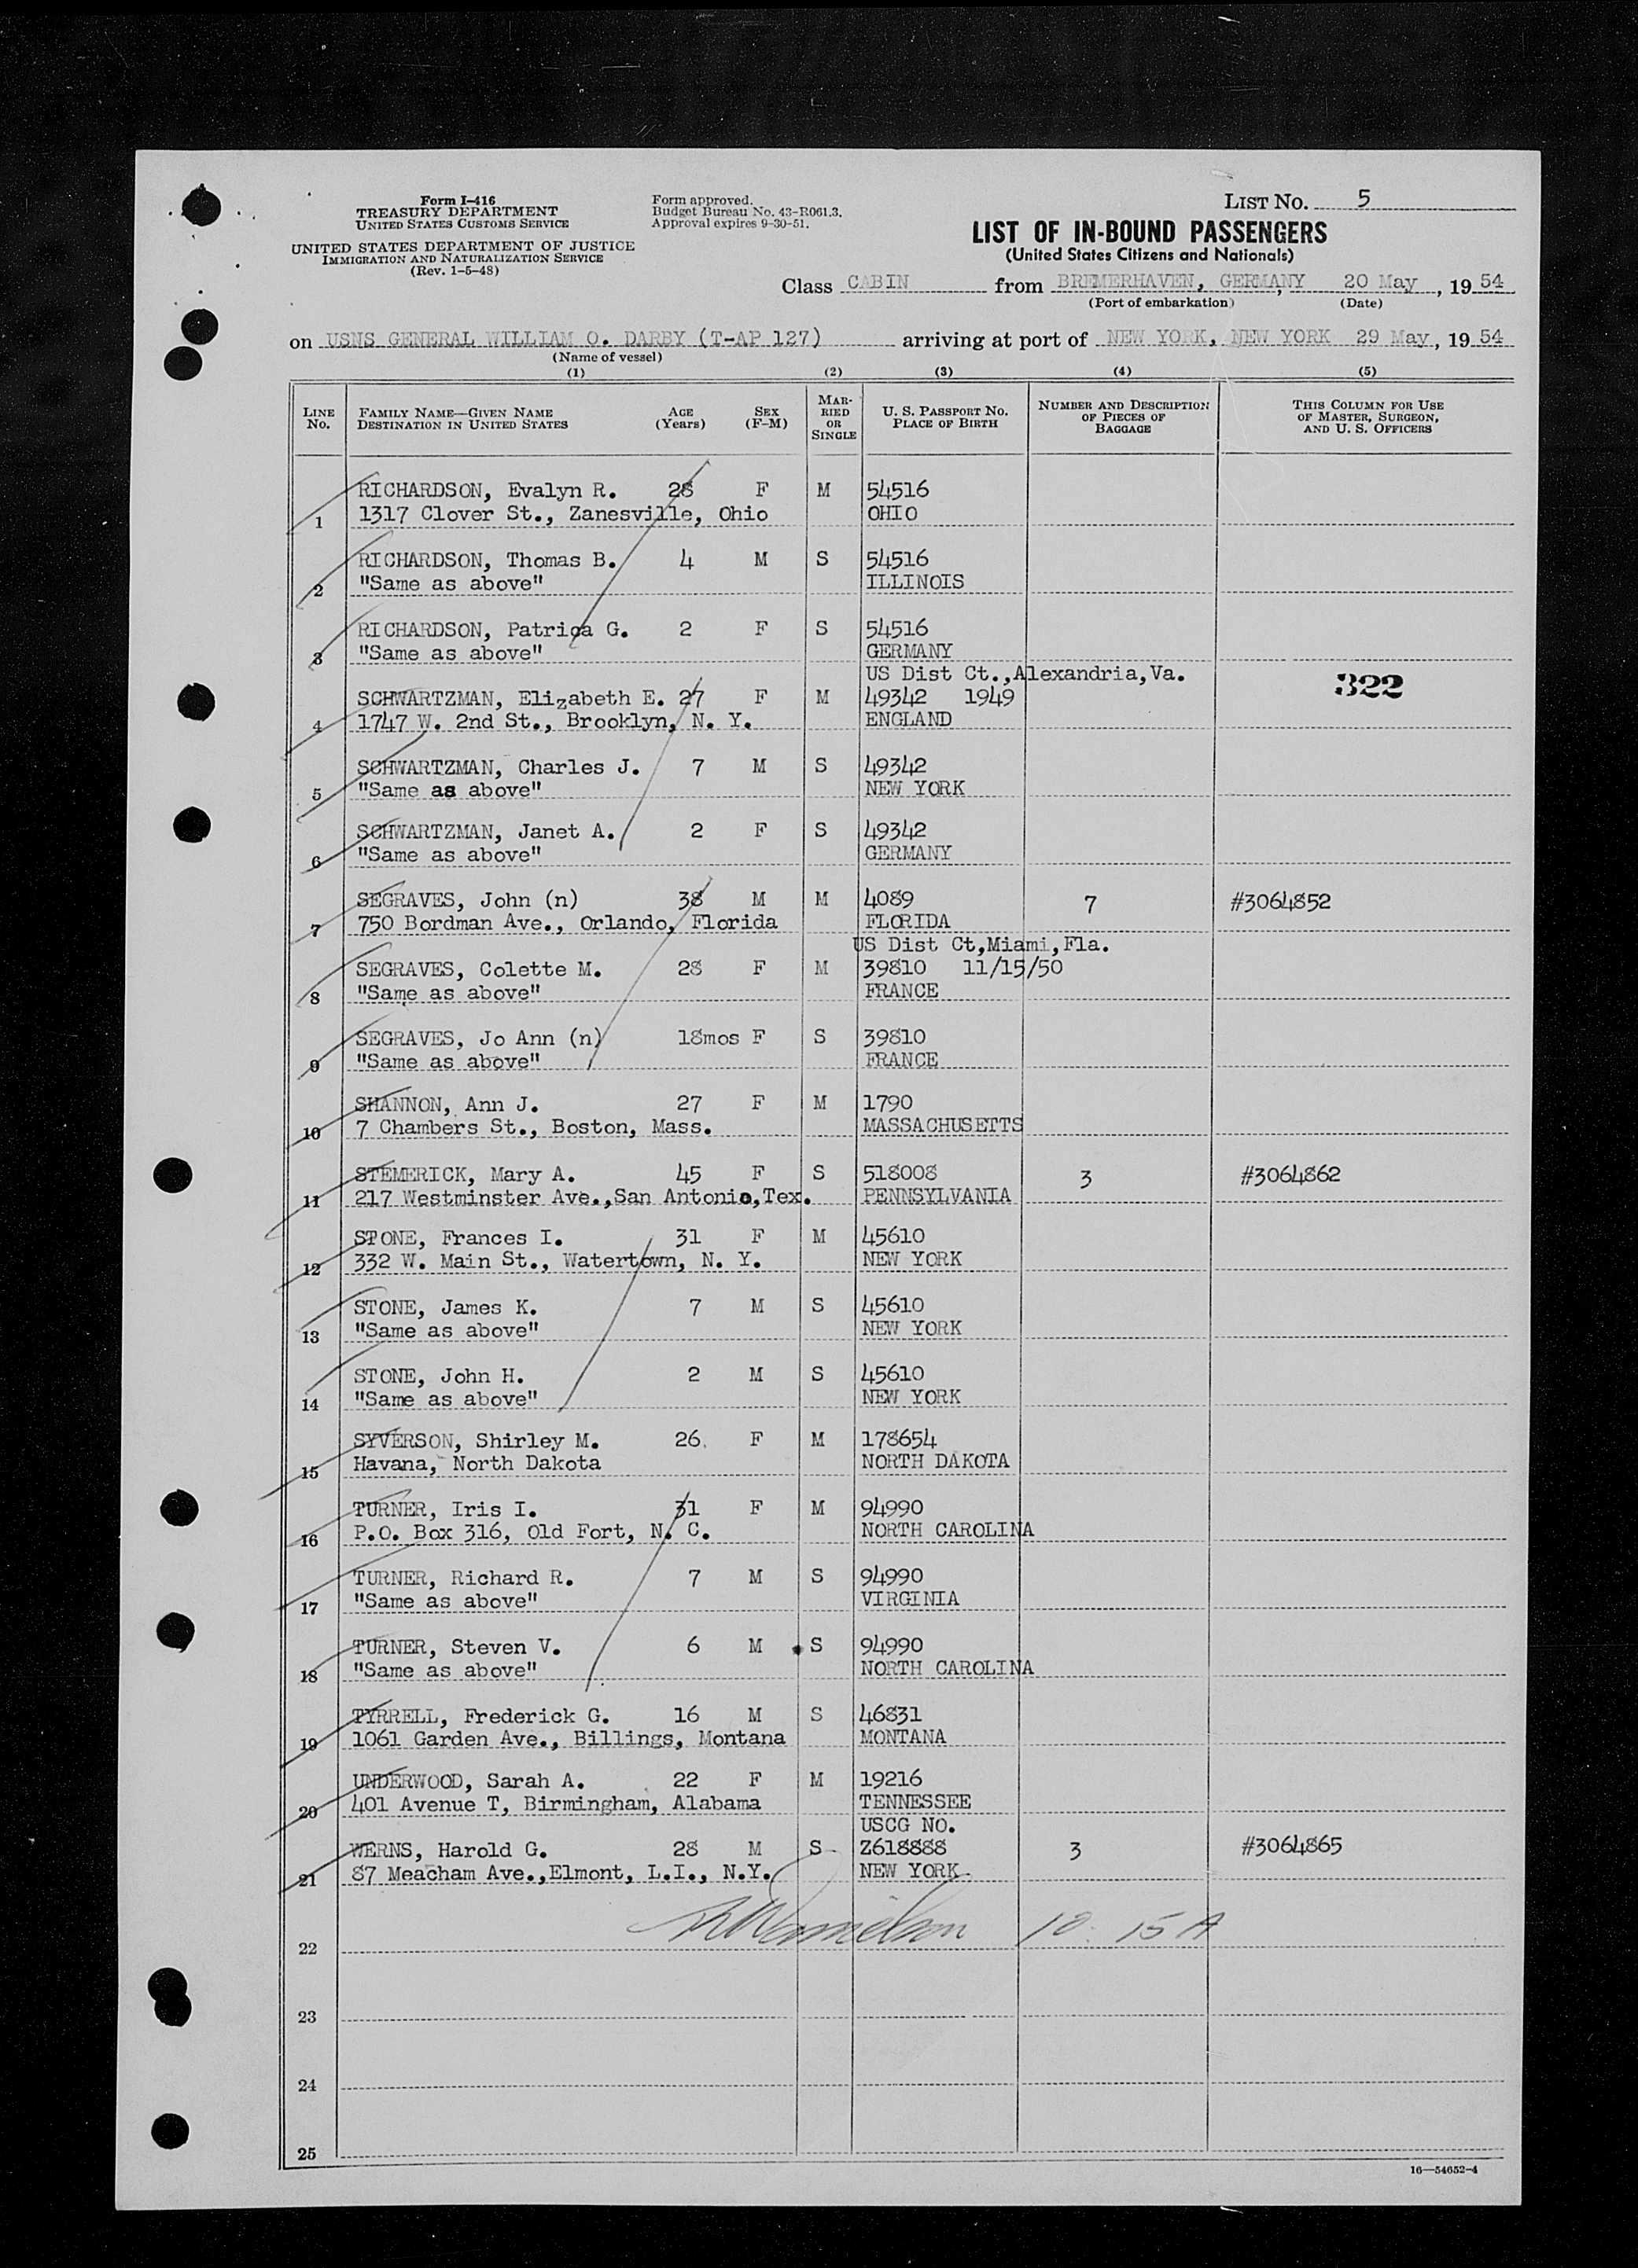 Form I-416
TREASURY DEPARTMENT
UNITED STATES CUSTOMS SERVICE
UNITED STATES DEPARTMENT OF JUSTICE
IMMIGRATION AND NATURALIZATION SERVICE
(Rev. 1-5-48)
Form approved.
Budget Bureau No. 43-R061.3.
Approval expires 9-30-51.
LIST No. 5
LIST OF IN-BOUND PASSENGERS
(United States Citizens and Nationals)
Class CABIN from BREMERHAVEN, GERMANY, 20 May, 1954
(Port of embarkation) (Date)
on USNS GENERAL WILLIAM O. DARBY (T-AP 127) arriving at port of NEW YORK, NEW YORK 29 May, 1954
(Name of vessel)
(1) (2) (3) (4) (5)
LINE No. FAMILY NAME—GIVEN NAME DESTINATION IN UNITED STATES AGE (Years) SEX (F-M) MARRIED OR SINGLE U. S. PASSPORT No. PLACE OF BIRTH NUMBER AND DESCRIPTION OF PIECES OF BAGGAGE THIS COLUMN FOR USE OF MASTER, SURGEON, AND U. S. OFFICERS
RICHARDSON, Evalyn R. 28 F M 54516
1 1317 Clover St., Zanesville, Ohio OHIO
RICHARDSON, Thomas B. 4 M S 54516
2 "Same as above" ILLINOIS
RICHARDSON, Patrica G. 2 F S 54516
3 "Same as above" GERMANY
US Dist Ct.,Alexandria,Va. 322
SCHWARTZMAN, Elizabeth E. 27 F M 49342 1949
4 1747 W. 2nd St., Brooklyn, N. Y. ENGLAND
SCHWARTZMAN, Charles J. 7 M S 49342
5 "Same as above" NEW YORK
SCHWARTZMAN, Janet A. 2 F S 49342
6 "Same as above" GERMANY
SEGRAVES, John (n) 38 M M 4089 7 #3064852
7 750 Bordman Ave., Orlando, Florida FLORIDA
US Dist Ct,Miami,Fla.
SEGRAVES, Colette M. 28 F M 39810 11/15/50
8 "Same as above" FRANCE
SEGRAVES, Jo Ann (n) 18mos F S 39810
9 "Same as above" FRANCE
SHANNON, Ann J. 27 F M 1790
10 7 Chambers St., Boston, Mass. MASSACHUSETTS
STEMERICK, Mary A. 45 F S 518008 3 #3064862
11 217 Westminster Ave.,San Antonio,Tex. PENNSYLVANIA
STONE, Frances I. 31 F M 45610
12 332 W. Main St., Watertown, N. Y. NEW YORK
STONE, James K. 7 M S 45610
13 "Same as above" NEW YORK
STONE, John H. 2 M S 45610
14 "Same as above" NEW YORK
SYVERSON, Shirley M. 26 F M 178654
15 Havana, North Dakota NORTH DAKOTA
TURNER, Iris I. 31 F M 94990
16 P.O. Box 316, Old Fort, N. C. NORTH CAROLINA
TURNER, Richard R. 7 M S 94990
17 "Same as above" VIRGINIA
TURNER, Steven V. 6 M S 94990
18 "Same as above" NORTH CAROLINA
TYRRELL, Frederick G. 16 M S 46831
19 1061 Garden Ave., Billings, Montana MONTANA
UNDERWOOD, Sarah A. 22 F M 19216
20 401 Avenue T, Birmingham, Alabama TENNESSEE
USCG NO.
WERNS, Harold G. 28 M S Z618888 3 #3064865
21 87 Meacham Ave.,Elmont, L.I., N.Y. NEW YORK
22 10 15 A
23
24
25
16—54652-4